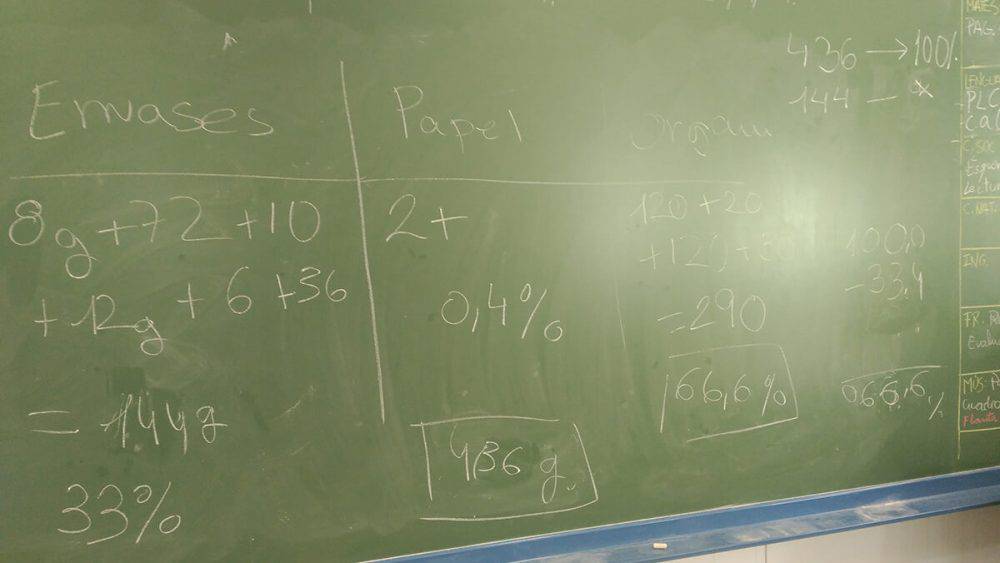 436 → 100%
144 — x
Envases
8g + 72 + 10
+ 12g + 6 + 36
= 144g
33%
Papel
2+
0,4%
436 g
Orgáni
120 + 20
+ 120 +
= 290
66,6%
100,0
- 33,4
066,6 %
PAG.
PLC
Cal
Lectu
C.NAT
ING.
FR.
Evalu
Cuadro
Flauta